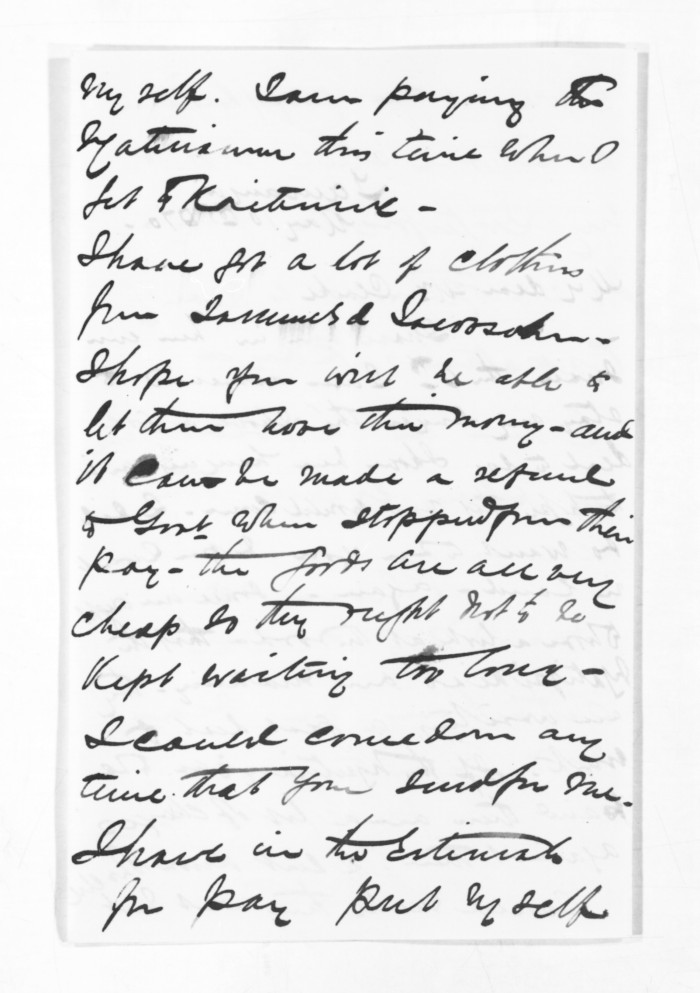 Myself. I am paying the
Ngatituamom this time when I
get to Kaiteririe -
I have got a lot of clothing
from Samuel & Jacobsohn -
I hope you will be able to
let them have their money - and
it can be made a refund
to Govt when stopped from their
pay - the goods are all very
cheap so they ought not to be
kept waiting too long -
I could come down any
time that you send for me -
I have in the Estimate
for pay put myself